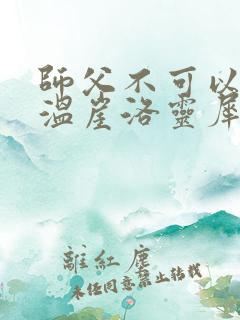 師父不可以
溫崖洛靈犀
離紅塵
未經同意禁止轉載